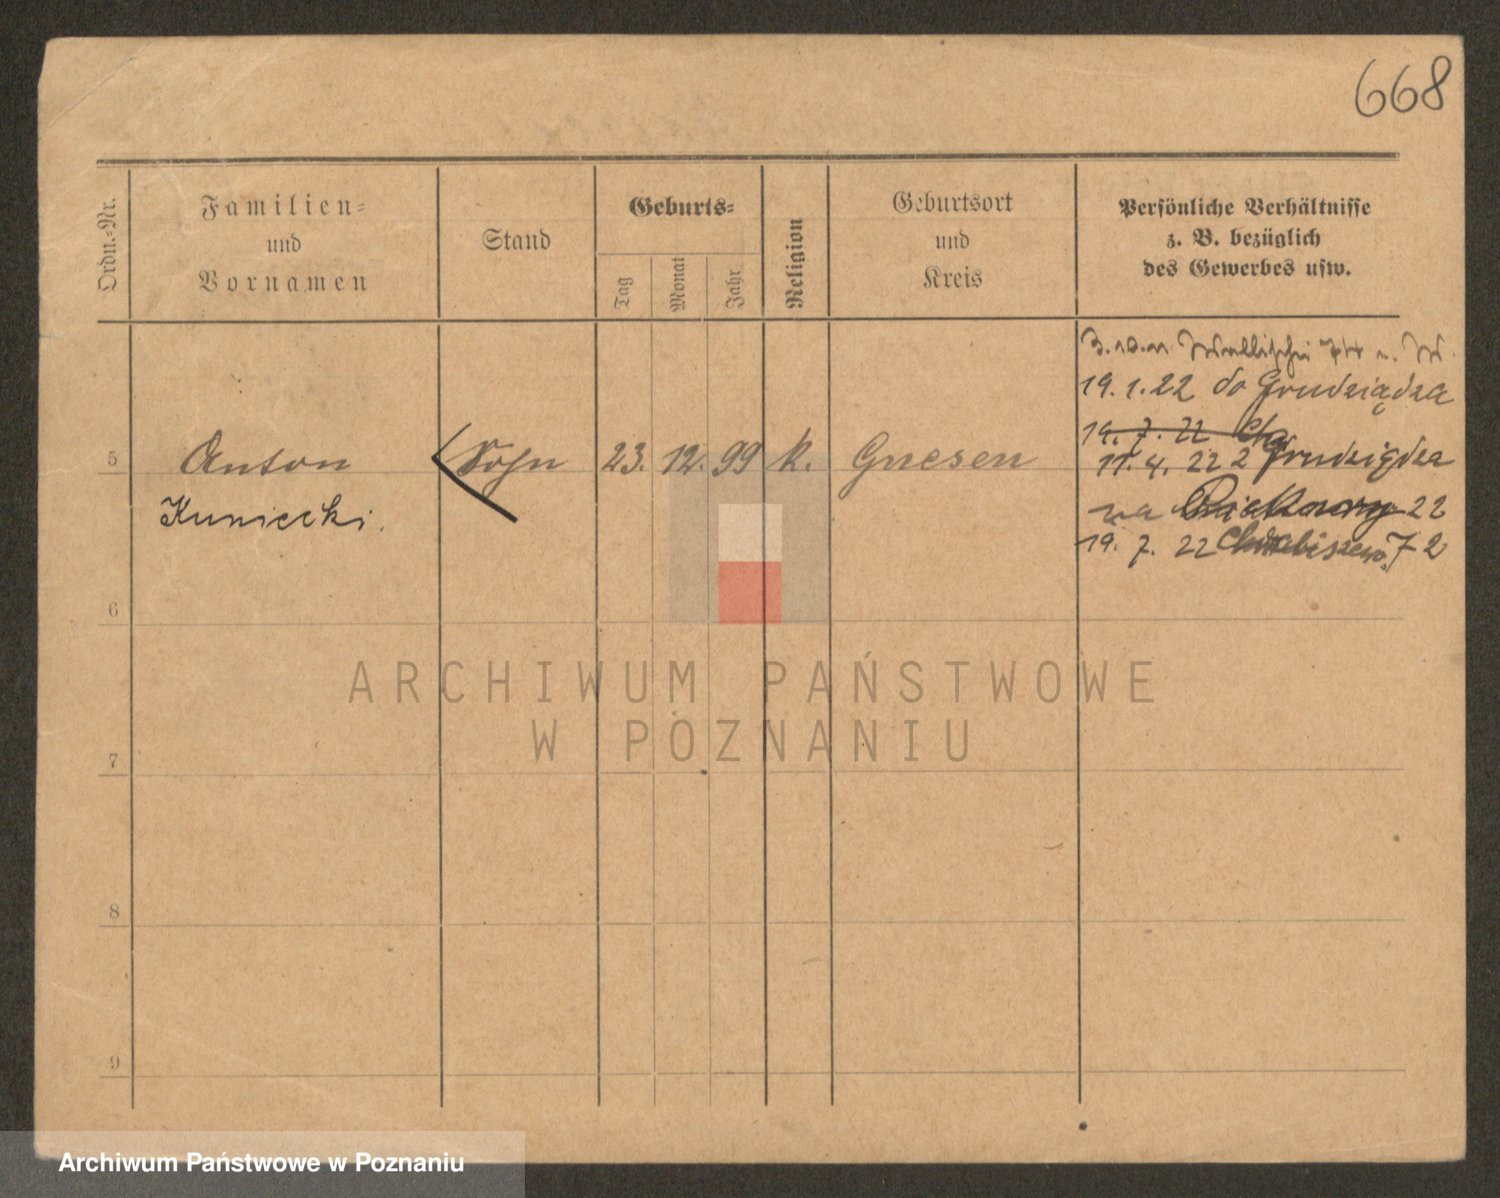 668
Ordn.-Nr.
Familien-
und
Vornamen
Stand
Geburts-
Tag
Monat
Jahr
Religion
Geburtsort
und
Kreis
Persönliche Verhältnisse
z. B. bezüglich
des Gewerbes usw.
19.1.22 do Grudziądza
19.7.22
5 Anton Sohn 23. 12. 99 k. Gnesen
11.4.22 z Grudziądza
Kuniecki.
na Piekary 22
19.7.22 72
6
7
8
9
ARCHIWUM PAŃSTWOWE
W POZNANIU
Archiwum Państwowe w Poznaniu